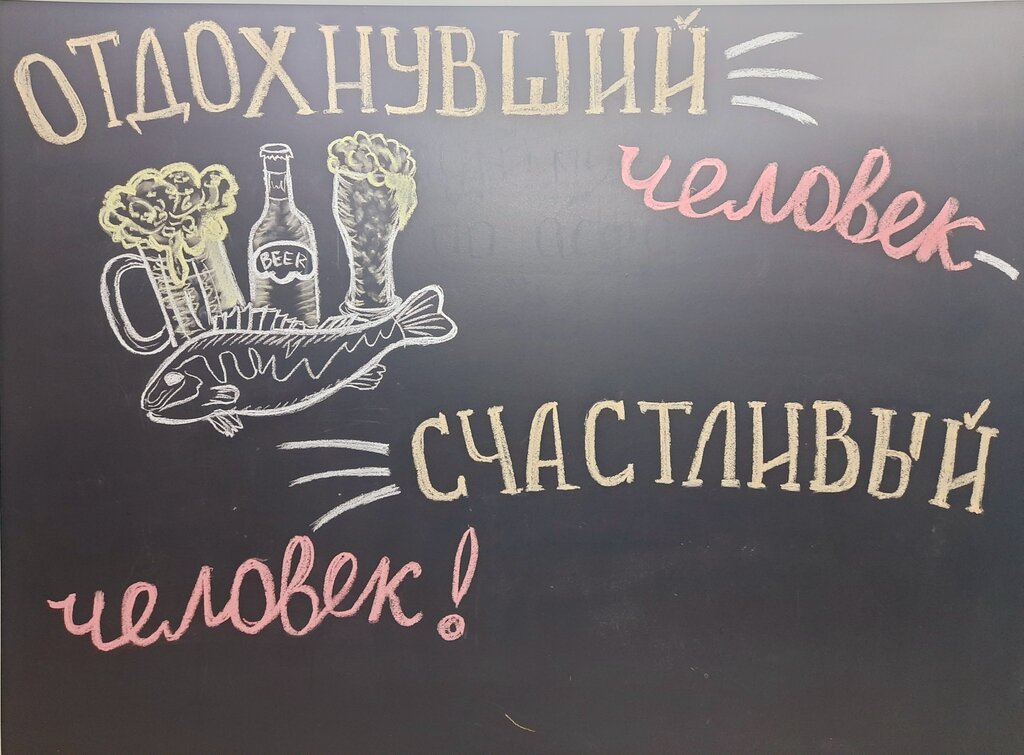 ОТДОХНУВШИЙ
человек -
BEER
СЧАСТЛИВЫЙ
человек!